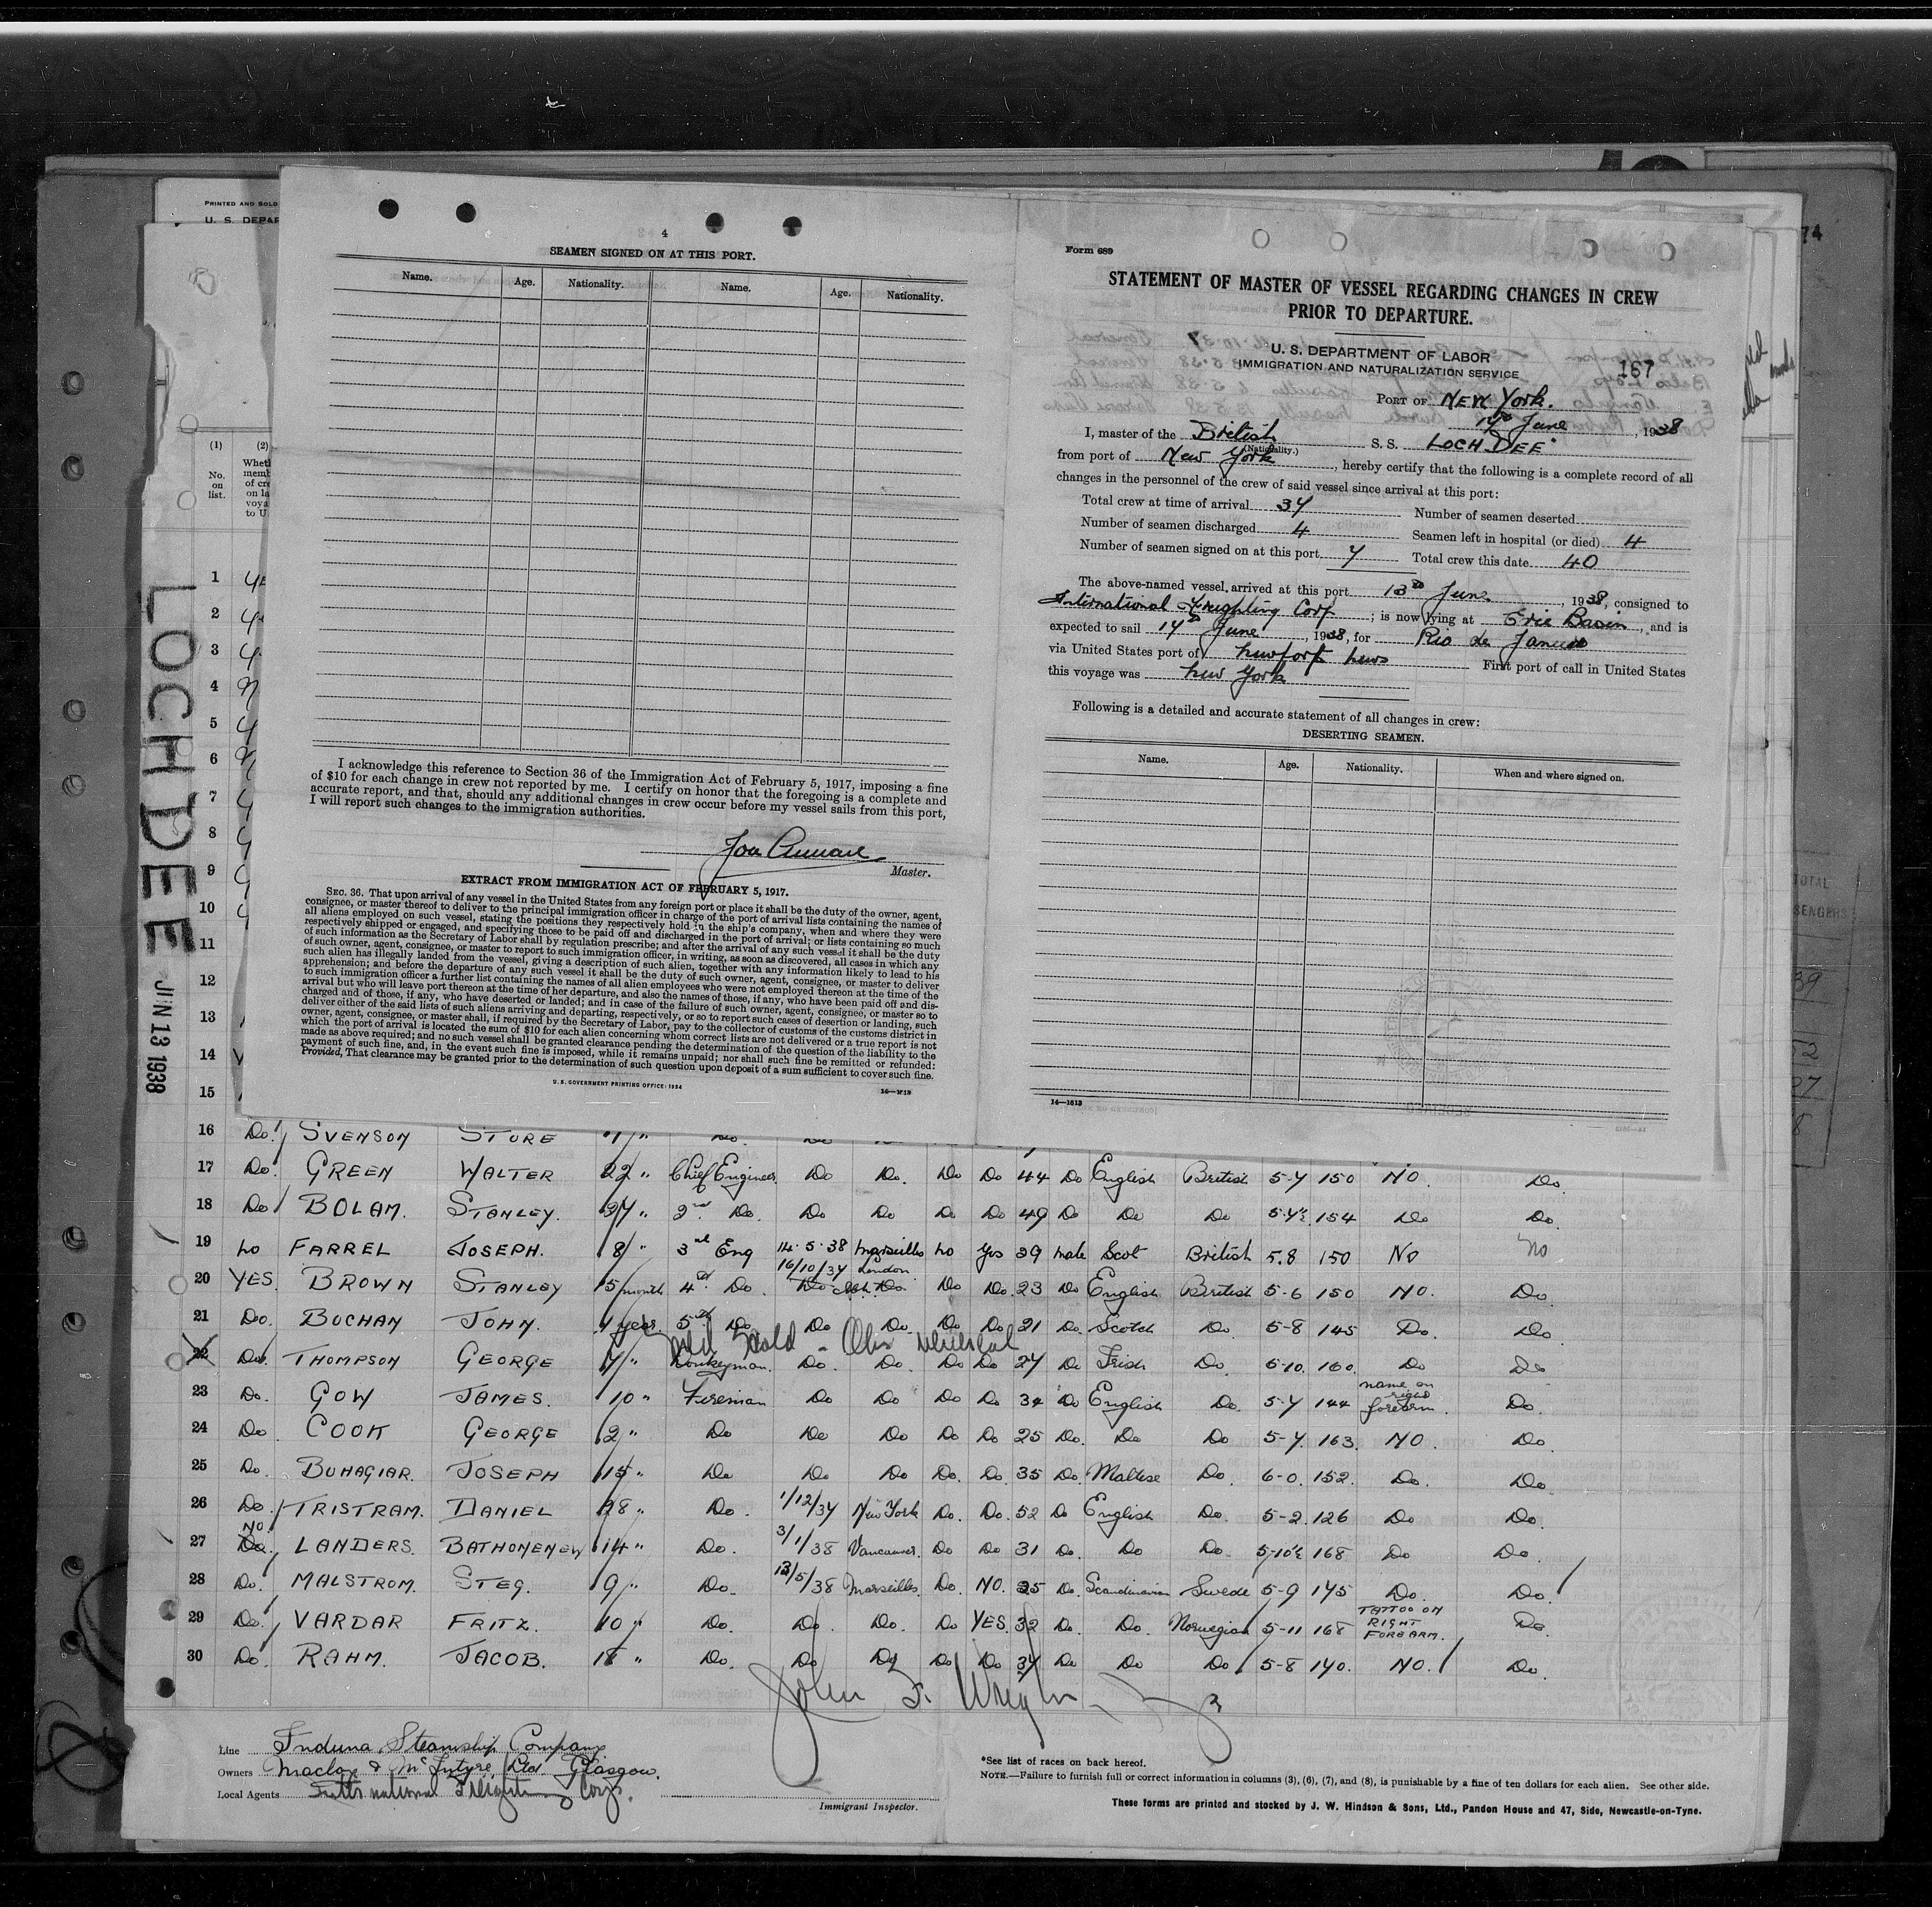 PRINTED AND SOLD
U. S. DEPAR
4
SEAMEN SIGNED ON AT THIS PORT.
Name. Age. Nationality. Name. Age. Nationality.
I acknowledge this reference to Section 36 of the Immigration Act of February 5, 1917, imposing a fine
of $10 for each change in crew not reported by me. I certify on honor that the foregoing is a complete and
accurate report, and that, should any additional changes in crew occur before my vessel sails from this port,
I will report such changes to the immigration authorities.
Master.
EXTRACT FROM IMMIGRATION ACT OF FEBRUARY 5, 1917.
SEC. 36. That upon arrival of any vessel in the United States from any foreign port or place it shall be the duty of the owner, agent,
consignee, or master thereof to deliver to the principal immigration officer in charge of the port of arrival lists containing the names of
all aliens employed on such vessel, stating the positions they respectively hold in the ship's company, when and where they were
respectively shipped or engaged, and specifying those to be paid off and discharged in the port of arrival; or lists containing so much
of such information as the Secretary of Labor shall by regulation prescribe; and after the arrival of any such vessel it shall be the duty
of such owner, agent, consignee, or master to report to such immigration officer, in writing, as soon as discovered, all cases in which any
such alien has illegally landed from the vessel, giving a description of such alien, together with any information likely to lead to his
apprehension; and before the departure of any such vessel it shall be the duty of such owner, agent, consignee, or master to deliver
to such immigration officer a further list containing the names of all alien employees who were not employed thereon at the time of the
arrival but who will leave port thereon at the time of her departure, and also the names of those, if any, who have been paid off and dis-
charged and of those, if any, who have deserted or landed; and in case of the failure of such owner, agent, consignee, or master so to
deliver either of the said lists of such aliens arriving and departing, respectively, or so to report such cases of desertion or landing, such
owner, agent, consignee, or master shall, if required by the Secretary of Labor, pay to the collector of customs of the customs district in
which the port of arrival is located the sum of $10 for each alien concerning whom correct lists are not delivered or a true report is not
made as above required; and no such vessel shall be granted clearance pending the determination of the question of the liability to the
payment of such fine, and, in the event such fine is imposed, while it remains unpaid; nor shall such fine be remitted or refunded:
Provided, That clearance may be granted prior to the determination of such question upon deposit of a sum sufficient to cover such fine.
U. S. GOVERNMENT PRINTING OFFICE: 1934 14—1613
Form 689
STATEMENT OF MASTER OF VESSEL REGARDING CHANGES IN CREW
PRIOR TO DEPARTURE.
U. S. DEPARTMENT OF LABOR
IMMIGRATION AND NATURALIZATION SERVICE
167
PORT OF NEW York.
June, 1938
I, master of the British S. S. LOCH DEE
(Nationality.)
from port of New York, hereby certify that the following is a complete record of all
changes in the personnel of the crew of said vessel since arrival at this port:
Total crew at time of arrival 37 Number of seamen deserted
Number of seamen discharged 4 Seamen left in hospital (or died) 4
Number of seamen signed on at this port 7 Total crew this date 40
The above-named vessel arrived at this port 13th June, 1938, consigned to
International Freighting Corp; is now lying at Erie Basin, and is
expected to sail 17th June, 1938, for Rio de Janeiro
via United States port of Newport News First port of call in United States
this voyage was New York
Following is a detailed and accurate statement of all changes in crew:
DESERTING SEAMEN.
Name. Age. Nationality. When and where signed on.
14—1613
LOCH DEE
JUN 13 1938
(1) (2)
No. on list.
Whet
memb
of cre
on la
voya
to U
1
2
3
4
5
6
7
8
9
10
11
12
13
14
15
16 Do. SVENSON STURE
17 Do. GREEN WALTER 22 " Chief Engineer Do Do. Do Do 44 Do English British 5-7 150 NO. Do.
18 Do BOLAM. STANLEY. 27 " 2nd Do. Do Do Do Do 49 Do Do Do 5-7½ 154 Do Do.
19 No FARREL JOSEPH. 8 " 3rd Eng 14.5.38 Marseilles No Yes 39 male Scot British 5.8 150 No No
16/10/37 London
20 YES. BROWN STANLEY 5/month 4th Do. Do Do Do. 23 Do English British 5-6 150 NO. Do.
21 Do. BUCHAN JOHN. 1 year. 5th Do. Do Do. Do Do 21 Do. Scotch Do. 5-8 145 Do. Do.
22 Do. THOMPSON GEORGE 7 " Donkeyman. Do. Do. Do Do 27 Do Irish Do. 5-10. 160. Do Do
23 Do. GOW JAMES. 10 " Fireman Do Do Do Do 34 Do English Do. 5-7 144 name on right forearm. Do.
24 Do. COOK GEORGE 2 " Do Do Do Do Do 25 Do. Do Do 5-7. 163. NO. Do.
25 Do. BUHAGIAR. JOSEPH 15 " Do Do Do Do. Do. 35 Do. Maltese Do. 6-0. 152. Do. Do.
26 Do. TRISTRAM. DANIEL 28 " Do. 1/12/37 New York Do. Do. 52 Do English Do. 5-2. 126 Do Do.
NO
27 Do. LANDERS. BATHOMENEW 14 " Do. 3/1/38 Vancouver. Do Do 31 Do. Do Do 5-10½ 168 Do Do.
28 Do. MALSTROM. STEG. 9 " Do. 13/5/38 Marseilles. Do. NO. 35 Do. Scandinavian Swede 5-9 175 Do. Do.
29 Do. VARDAR FRITZ. 10 " Do. Do. Do. Do YES. 32 Do. Do. Norwegian 5-11 168 TATTOO ON RIGHT FOREARM. Do.
30 Do. RAHM. JACOB. 18 " Do. Do Do Do Do 37 Do Do Do 5-8 140. NO. Do.
Line Induna Steamship Company
Owners Maclay & McIntyre, Ltd. Glasgow.
Local Agents International Freighting Corp.
Immigrant Inspector.
*See list of races on back hereof.
NOTE.—Failure to furnish full or correct information in columns (3), (6), (7), and (8), is punishable by a fine of ten dollars for each alien. See other side.
These forms are printed and stocked by J. W. Hindson & Sons, Ltd., Pandon House and 47, Side, Newcastle-on-Tyne.
74
TOTAL
SENGERS
39
52